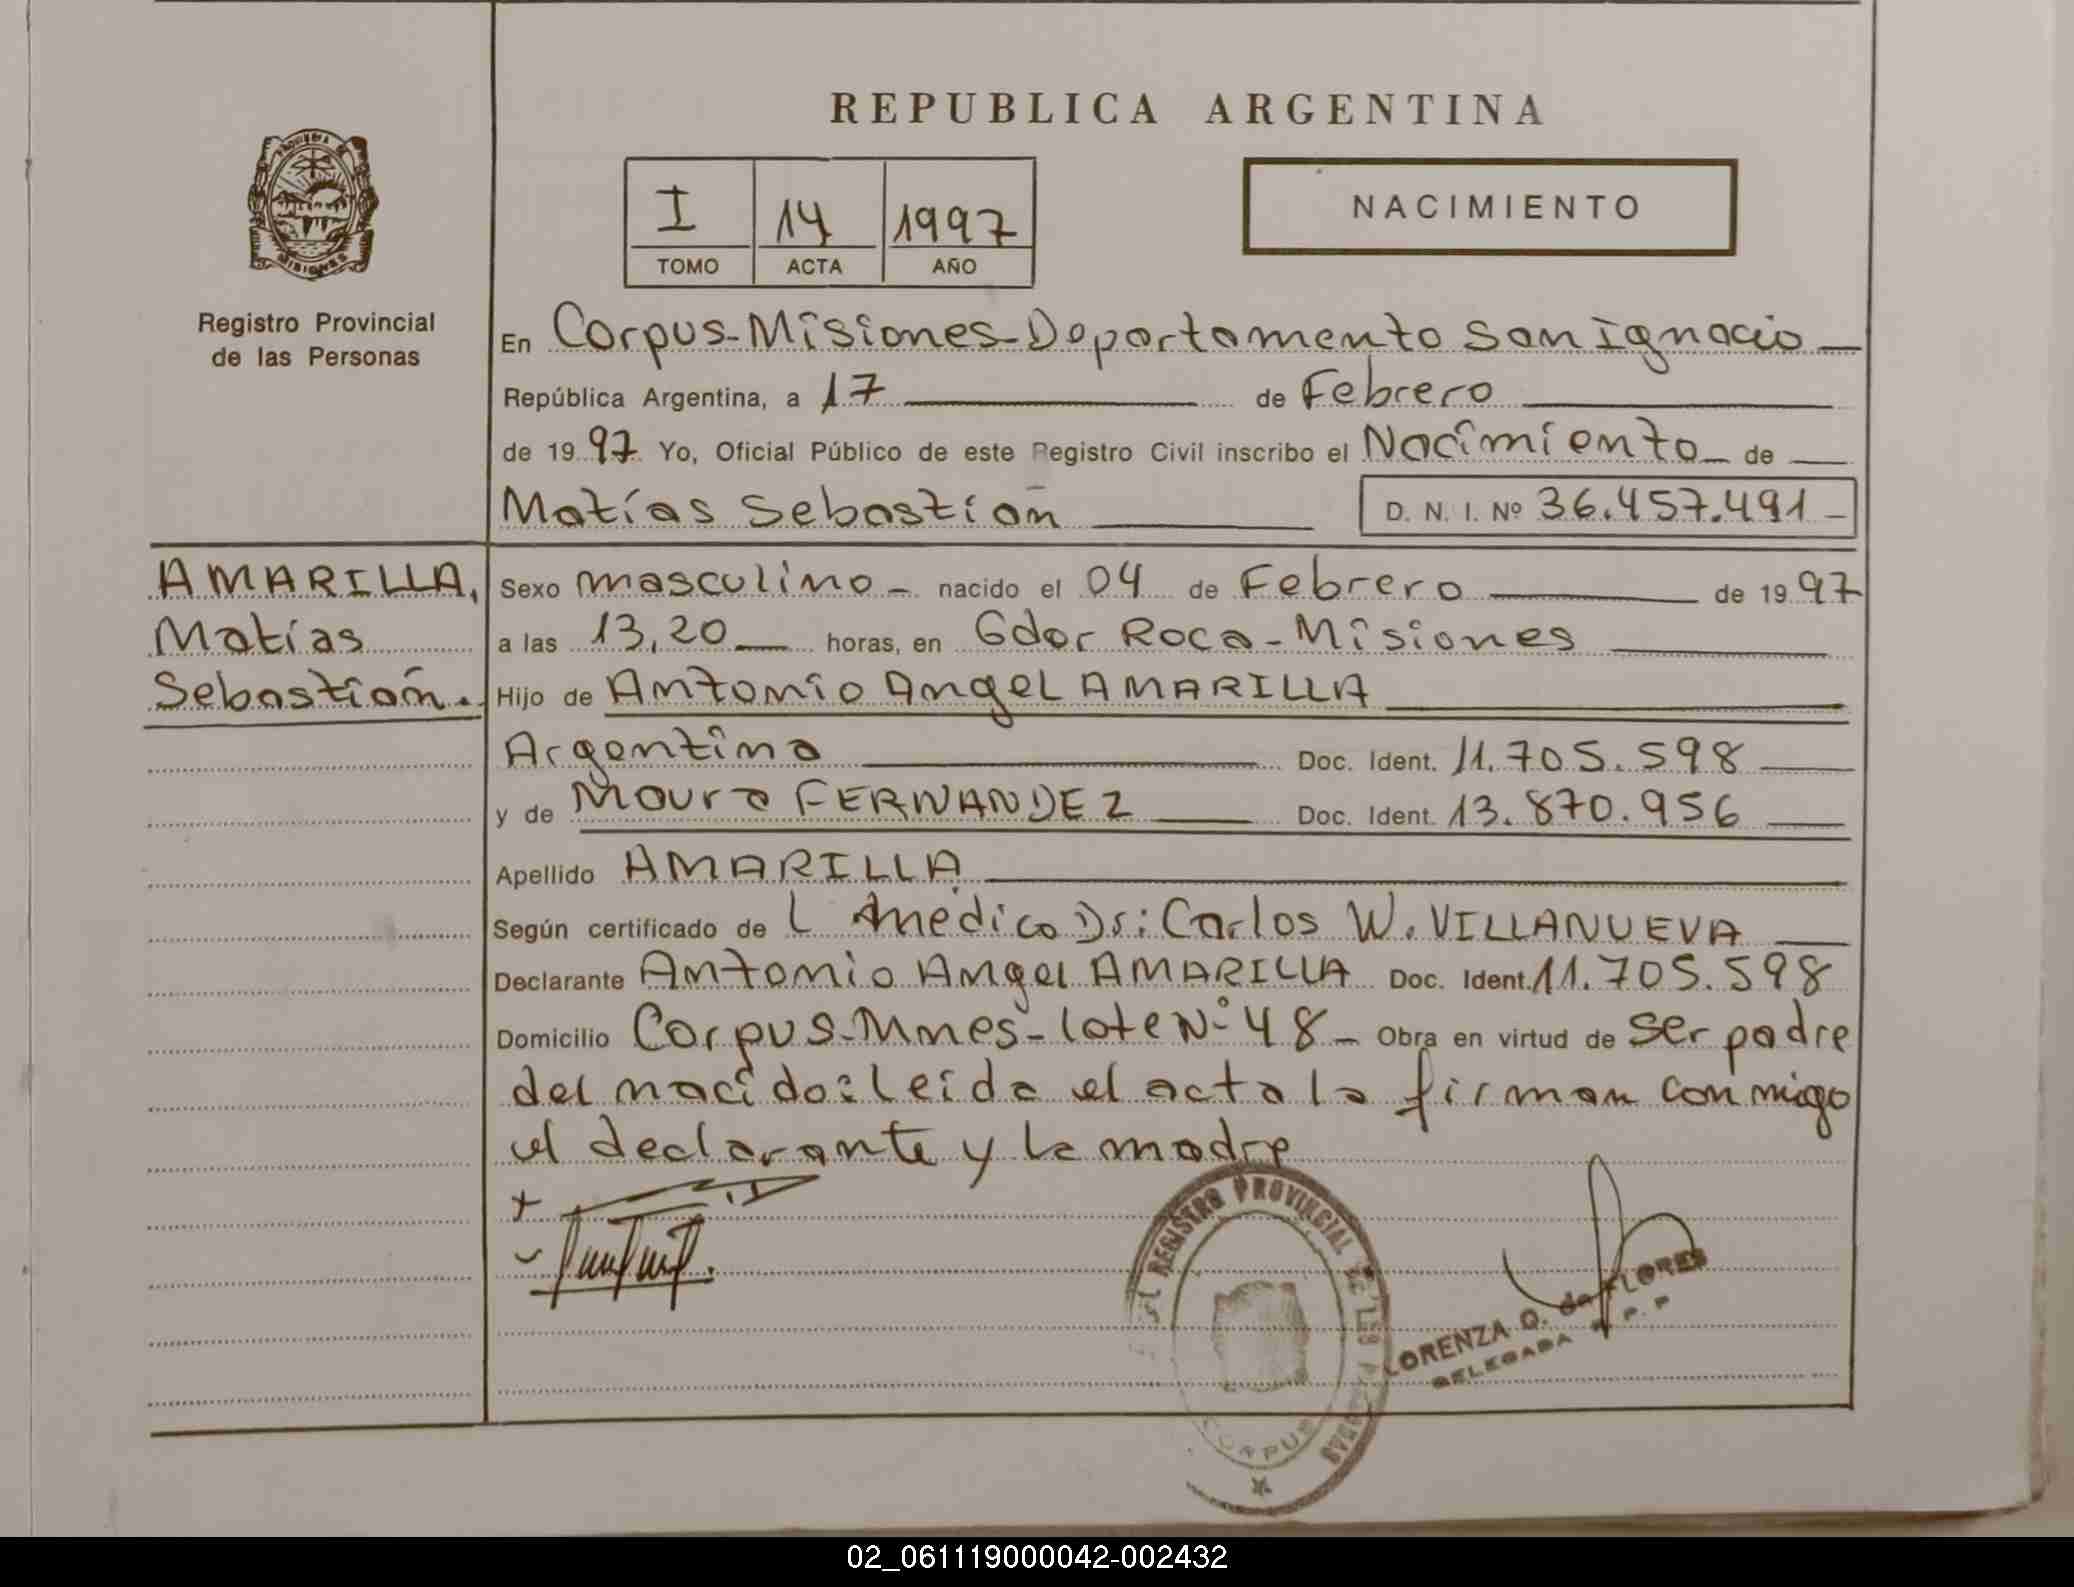 REPUBLICA ARGENTINA
PROVINCIA DE
MISIONES
Registro Provincial
de las Personas
I 14 1997
TOMO ACTA AÑO
NACIMIENTO
En Corpus-Misiones-Departamento San Ignacio
República Argentina, a 17 de Febrero
de 1997 Yo, Oficial Público de este Registro Civil inscribo el Nacimiento de
Matías Sebastián D. N. I. Nº 36.457.491
AMARILLA,
Matías
Sebastián.
Sexo masculino nacido el 04 de Febrero de 1997
a las 13,20 horas, en Gdor Roca-Misiones
Hijo de Antonio Angel AMARILLA
Argentina Doc. Ident. 11.705.598
y de Maura FERNANDEZ Doc. Ident. 13.870.956
Apellido AMARILLA
Según certificado de L médico Dr: Carlos W. VILLANUEVA
Declarante Antonio Angel AMARILLA Doc. Ident. 11.705.598
Domicilio Corpus-Mnes-Lote Nº 48 Obra en virtud de ser padre
del nacido: Leida el acta la firman conmigo
el declarante y la madre
REGISTRO PROVINCIAL DE LAS PERSONAS
CORPUS
LORENZA Q. de FLORES
DELEGADA R. P. P
02_061119000042-002432